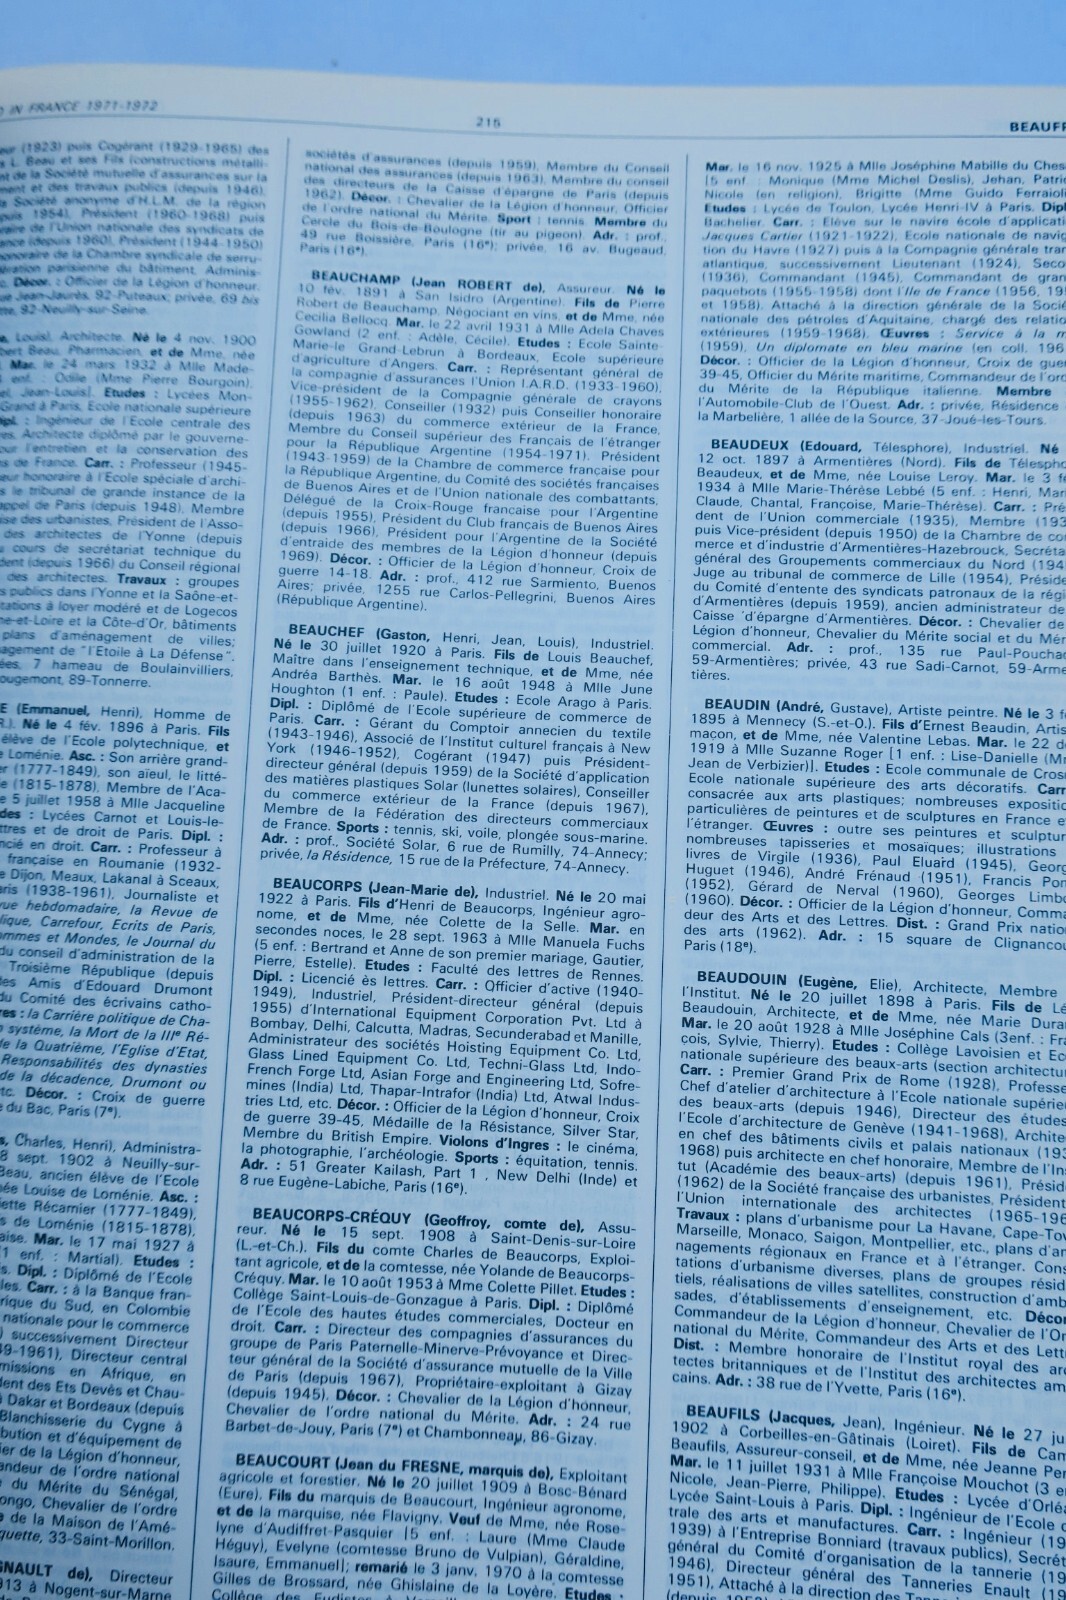 IN FRANCE 1971-1972
215
BEAUFR
(1923) puis Cogérant (1929-1965) des
L. Beau et ses Fils (constructions métalli-
de la Société mutuelle d'assurances sur la
et des travaux publics (depuis 1946),
Société anonyme d'H.L.M. de la région
1954), Président (1960-1968) puis
de l'Union nationale des syndicats de
(depuis 1960), Président (1944-1950)
honoraire de la Chambre syndicale de serru-
parisienne du bâtiment, Adminis-
Décor. : Officier de la Légion d'honneur.
Jean-Jaurès, 92-Puteaux; privée, 69 bis
92-Neuilly-sur-Seine.
Louis), Architecte. Né le 4 nov. 1900
Beau, Pharmacien, et de Mme, née
Mar. le 24 mars 1932 à Mlle Made-
enf. : Odile (Mme Pierre Bourgoin),
Jean-Louis]. Etudes : Lycées Mon-
Grand à Paris, Ecole nationale supérieure
Dipl. : Ingénieur de l'Ecole centrale des
Architecte diplômé par le gouverne-
l'entretien et la conservation des
de France. Carr. : Professeur (1945-
honoraire à l'Ecole spéciale d'archi-
le tribunal de grande instance de la
appel de Paris (depuis 1948), Membre
des urbanistes, Président de l'Asso-
des architectes de l'Yonne (depuis
cours de secrétariat technique du
(depuis 1966) du Conseil régional
des architectes. Travaux : groupes
publics dans l'Yonne et la Saône-et-
à loyer modéré et de Logecos
et-Loire et la Côte-d'Or, bâtiments
plans d'aménagement de villes;
de "l'Etoile à La Défense".
7 hameau de Boulainvilliers,
Rougemont, 89-Tonnerre.
(Emmanuel, Henri), Homme de
Né le 4 fév. 1896 à Paris. Fils
élève de l'Ecole polytechnique, et
Loménie. Asc. : Son arrière grand-
(1777-1849), son aïeul, le litté-
(1815-1878), Membre de l'Aca-
5 juillet 1958 à Mlle Jacqueline
: Lycées Carnot et Louis-le-
lettres et de droit de Paris. Dipl. :
en droit. Carr. : Professeur à
française en Roumanie (1932-
Dijon, Meaux, Lakanal à Sceaux,
Paris (1938-1961), Journaliste et
hebdomadaire, la Revue de
Carrefour, Ecrits de Paris,
Hommes et Mondes, le Journal du
du conseil d'administration de la
Troisième République (depuis
des Amis d'Edouard Drumont
du Comité des écrivains catho-
: la Carrière politique de Cha-
système, la Mort de la IIIe Ré-
de la Quatrième, l'Eglise d'Etat,
Responsabilités des dynasties
de la décadence, Drumont ou
etc. Décor. : Croix de guerre
du Bac, Paris (7e).
Charles, Henri), Administra-
8 sept. 1902 à Neuilly-sur-
Beau, ancien élève de l'Ecole
née Louise de Loménie. Asc. :
Récamier (1777-1849),
de Loménie (1815-1878),
Mar. le 17 mai 1927 à
(1 enf. : Martial). Etudes :
Dipl. : Diplômé de l'Ecole
Carr. : à la Banque fran-
du Sud, en Colombie
nationale pour le commerce
successivement Directeur
-1961), Directeur central
missions en Afrique, en
des Ets Devès et Chau-
Dakar et Bordeaux (depuis
Blanchisserie du Cygne à
et d'équipement de
de la Légion d'honneur,
de l'ordre national
du Mérite du Sénégal,
Congo, Chevalier de l'ordre
de la Maison de l'Amé-
33-Saint-Morillon.
de), Directeur
1913 à Nogent-sur-Marne
sociétés d'assurances (depuis 1959), Membre du Conseil
national des assurances (depuis 1963), Membre du conseil
des directeurs de la Caisse d'épargne de Paris (depuis
1962). Décor. : Chevalier de la Légion d'honneur, Officier
de l'ordre national du Mérite. Sport : tennis. Membre du
Cercle du Bois-de-Boulogne (tir au pigeon). Adr. : prof.,
49 rue Boissière, Paris (16e); privée, 16 av. Bugeaud,
Paris (16e).
BEAUCHAMP (Jean ROBERT de), Assureur. Né le
10 fév. 1891 à San Isidro (Argentine). Fils de Pierre
Robert de Beauchamp, Négociant en vins, et de Mme, née
Cecilia Bellocq. Mar. le 22 avril 1931 à Mlle Adela Chaves
Gowland (2 enf. : Adèle, Cécile). Etudes : Ecole Sainte-
Marie-le Grand-Lebrun à Bordeaux, Ecole supérieure
d'agriculture d'Angers. Carr. : Représentant général de
la compagnie d'assurances l'Union I.A.R.D. (1933-1960),
Vice-président de la Compagnie générale de crayons
(1955-1962), Conseiller (1932) puis Conseiller honoraire
(depuis 1963) du commerce extérieur de la France,
Membre du Conseil supérieur des Français de l'étranger
pour la République Argentine (1954-1971), Président
(1943-1959) de la Chambre de commerce française pour
la République Argentine, du Comité des sociétés françaises
de Buenos Aires et de l'Union nationale des combattants,
Délégué de la Croix-Rouge française pour l'Argentine
(depuis 1955), Président du Club français de Buenos Aires
(depuis 1966), Président pour l'Argentine de la Société
d'entraide des membres de la Légion d'honneur (depuis
1969). Décor. : Officier de la Légion d'honneur, Croix de
guerre 14-18. Adr. : prof., 412 rue Sarmiento, Buenos
Aires; privée, 1255 rue Carlos-Pellegrini, Buenos Aires
(République Argentine).
BEAUCHEF (Gaston, Henri, Jean, Louis), Industriel.
Né le 30 juillet 1920 à Paris. Fils de Louis Beauchef,
Maître dans l'enseignement technique, et de Mme, née
Andréa Barthès. Mar. le 16 août 1948 à Mlle June
Houghton (1 enf. : Paule). Etudes : Ecole Arago à Paris.
Dipl. : Diplômé de l'Ecole supérieure de commerce de
Paris. Carr. : Gérant du Comptoir annecien du textile
(1943-1946), Associé de l'Institut culturel français à New
York (1946-1952), Cogérant (1947) puis Président-
directeur général (depuis 1959) de la Société d'application
des matières plastiques Solar (lunettes solaires), Conseiller
du commerce extérieur de la France (depuis 1967),
Membre de la Fédération des directeurs commerciaux
de France. Sports : tennis, ski, voile, plongée sous-marine.
Adr. : prof., Société Solar, 6 rue de Rumilly, 74-Annecy;
privée, la Résidence, 15 rue de la Préfecture, 74-Annecy.
BEAUCORPS (Jean-Marie de), Industriel. Né le 20 mai
1922 à Paris. Fils d'Henri de Beaucorps, Ingénieur agro-
nome, et de Mme, née Colette de la Selle. Mar. en
secondes noces, le 28 sept. 1963 à Mlle Manuela Fuchs
(5 enf. : Bertrand et Anne de son premier mariage, Gautier,
Pierre, Estelle). Etudes : Faculté des lettres de Rennes.
Dipl. : Licencié ès lettres. Carr. : Officier d'active (1940-
1949), Industriel, Président-directeur général (depuis
1955) d'International Equipment Corporation Pvt. Ltd à
Bombay, Delhi, Calcutta, Madras, Secunderabad et Manille,
Administrateur des sociétés Hoisting Equipment Co. Ltd,
Glass Lined Equipment Co. Ltd, Techni-Glass Ltd, Indo-
French Forge Ltd, Asian Forge and Engineering Ltd, Sofre-
mines (India) Ltd, Thapar-Intrafor (India) Ltd, Atwal Indus-
tries Ltd, etc. Décor. : Officier de la Légion d'honneur, Croix
de guerre 39-45, Médaille de la Résistance, Silver Star,
Membre du British Empire. Violons d'Ingres : le cinéma,
la photographie, l'archéologie. Sports : équitation, tennis.
Adr. : 51 Greater Kailash, Part 1 , New Delhi (Inde) et
8 rue Eugène-Labiche, Paris (16e).
BEAUCORPS-CRÉQUY (Geoffroy, comte de), Assu-
reur. Né le 15 sept. 1908 à Saint-Denis-sur-Loire
(L.-et-Ch.). Fils du comte Charles de Beaucorps, Exploi-
tant agricole, et de la comtesse, née Yolande de Beaucorps-
Créquy. Mar. le 10 août 1953 à Mme Colette Pillet. Etudes :
Collège Saint-Louis-de-Gonzague à Paris. Dipl. : Diplômé
de l'Ecole des hautes études commerciales, Docteur en
droit. Carr. : Directeur des compagnies d'assurances du
groupe de Paris Paternelle-Minerve-Prévoyance et Direc-
teur général de la Société d'assurance mutuelle de la Ville
de Paris (depuis 1967), Propriétaire-exploitant à Gizay
(depuis 1945). Décor. : Chevalier de la Légion d'honneur,
Chevalier de l'ordre national du Mérite. Adr. : 24 rue
Barbet-de-Jouy, Paris (7e) et Chambonneau, 86-Gizay.
BEAUCOURT (Jean du FRESNE, marquis de), Exploitant
agricole et forestier. Né le 20 juillet 1909 à Bosc-Bénard
(Eure). Fils du marquis de Beaucourt, Ingénieur agronome,
et de la marquise, née Flavigny. Veuf de Mme, née Rose-
lyne d'Audiffret-Pasquier [5 enf. : Laure (Mme Claude
Héguy), Evelyne (comtesse Bruno de Vulpian), Géraldine,
Isaure, Emmanuel]; remarié le 3 janv. 1970 à la comtesse
Gilles de Brossard, née Ghislaine de la Loyère. Etudes :
Mar. le 16 nov. 1925 à Mlle Joséphine Mabille du Ches
[5 enf. : Monique (Mme Michel Deslis), Jehan, Patric
Nicole (en religion), Brigitte (Mme Guido Ferraioli
Etudes : Lycée de Toulon, Lycée Henri-IV à Paris. Dipl
Bachelier. Carr. : Elève sur le navire école d'applicati
Jacques Cartier (1921-1922), Ecole nationale de navig
tion du Havre (1927) puis à la Compagnie générale tran
atlantique, successivement Lieutenant (1924), Seco
(1936), Commandant (1945), Commandant de gran
paquebots (1955-1958) dont l'Ile de France (1956, 195
et 1958), Attaché à la direction générale de la Socié
nationale des pétroles d'Aquitaine, chargé des relation
extérieures (1959-1968). Œuvres : Service à la m
(1959), Un diplomate en bleu marine (en coll. 196
Décor. : Officier de la Légion d'honneur, Croix de guer
39-45, Officier du Mérite maritime, Commandeur de l'ord
du Mérite de la République italienne. Membre
l'Automobile-Club de l'Ouest. Adr. : privée, Résidence
la Marbelière, 1 allée de la Source, 37-Joué-les-Tours.
BEAUDEUX (Edouard, Télesphore), Industriel. Né
12 oct. 1897 à Armentières (Nord). Fils de Télespho
Beaudeux, et de Mme, née Louise Leroy. Mar. le 3 fé
1934 à Mlle Marie-Thérèse Lebbé (5 enf. : Henri, Mari
Claude, Chantal, Françoise, Marie-Thérèse). Carr. : Pré
dent de l'Union commerciale (1935), Membre (193
puis Vice-président (depuis 1950) de la Chambre de co
merce et d'industrie d'Armentières-Hazebrouck, Secréta
général des Groupements commerciaux du Nord (194
Juge au tribunal de commerce de Lille (1954), Préside
du Comité d'entente des syndicats patronaux de la régi
d'Armentières (depuis 1959), ancien administrateur de
Caisse d'épargne d'Armentières. Décor. : Chevalier de
Légion d'honneur, Chevalier du Mérite social et du Mér
commercial. Adr. : prof., 135 rue Paul-Pouchai
59-Armentières; privée, 43 rue Sadi-Carnot, 59-Arme
tières.
BEAUDIN (André, Gustave), Artiste peintre. Né le 3 f
1895 à Mennecy (S.-et-O.). Fils d'Ernest Beaudin, Artis
maçon, et de Mme, née Valentine Lebas. Mar. le 22 d
1919 à Mlle Suzanne Roger [1 enf. : Lise-Danielle (Mm
Jean de Verbizier)]. Etudes : Ecole communale de Cros
Ecole nationale supérieure des arts décoratifs. Carr
consacrée aux arts plastiques; nombreuses expositio
particulières de peintures et de sculptures en France et
l'étranger. Œuvres : outre ses peintures et sculptur
nombreuses tapisseries et mosaïques; illustrations
livres de Virgile (1936), Paul Eluard (1945), Georg
Huguet (1946), André Frénaud (1951), Francis Pon
(1952), Gérard de Nerval (1960), Georges Limbo
(1960). Décor. : Officier de la Légion d'honneur, Comma
deur des Arts et des Lettres. Dist. : Grand Prix natio
des arts (1962). Adr. : 15 square de Clignancou
Paris (18e).
BEAUDOUIN (Eugène, Elie), Architecte, Membre
l'Institut. Né le 20 juillet 1898 à Paris. Fils de Lé
Beaudouin, Architecte, et de Mme, née Marie Duran
Mar. le 20 août 1928 à Mlle Joséphine Cals (3enf. : Fra
çois, Sylvie, Thierry). Etudes : Collège Lavoisien et Eco
nationale supérieure des beaux-arts (section architectur
Carr. : Premier Grand Prix de Rome (1928), Professe
Chef d'atelier d'architecture à l'Ecole nationale supérie
des beaux-arts (depuis 1946), Directeur des études
l'Ecole d'architecture de Genève (1941-1968), Archite
en chef des bâtiments civils et palais nationaux (193
1968) puis architecte en chef honoraire, Membre de l'Ins
tut (Académie des beaux-arts) (depuis 1961), Présid
(1962) de la Société française des urbanistes, Président
l'Union internationale des architectes (1965-196
Travaux : plans d'urbanisme pour La Havane, Cape-Tow
Marseille, Monaco, Saigon, Montpellier, etc., plans d'am
nagements régionaux en France et à l'étranger. Cons
tations d'urbanisme diverses, plans de groupes résid
tiels, réalisations de villes satellites, construction d'amb
sades, d'établissements d'enseignement, etc. Décor
Commandeur de la Légion d'honneur, Chevalier de l'Or
national du Mérite, Commandeur des Arts et des Lett
Dist. : Membre honoraire de l'Institut royal des arc
tectes britanniques et de l'Institut des architectes am
cains. Adr. : 38 rue de l'Yvette, Paris (16e).
BEAUFILS (Jacques, Jean), Ingénieur. Né le 27 ju
1902 à Corbeilles-en-Gâtinais (Loiret). Fils de Cam
Beaufils, Assureur-conseil, et de Mme, née Jeanne Per
Mar. le 11 juillet 1931 à Mlle Françoise Mouchot (3 en
Nicole, Jean-Pierre, Philippe). Etudes : Lycée d'Orléa
Lycée Saint-Louis à Paris. Dipl. : Ingénieur de l'Ecole c
trale des arts et manufactures. Carr. : Ingénieur (19
1939) à l'Entreprise Bonniard (travaux publics), Secrét
général du Comité d'organisation de la tannerie (19
1946), Directeur général des Tanneries Enault (19
1951), Attaché à la direction des